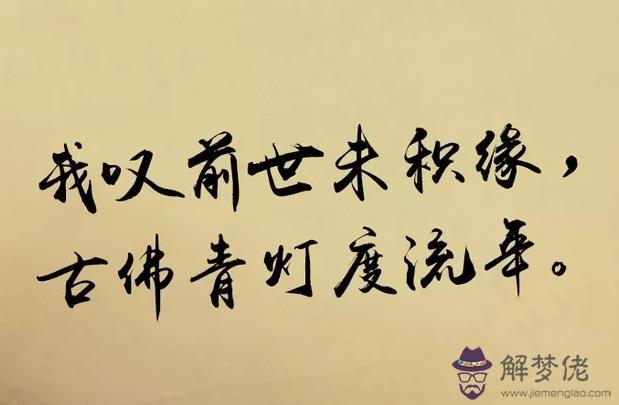 我叹前世未积缘，
古佛青灯度流年。
解梦佬
www.jiemenglao.com